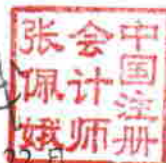 中国注册
会计师
张佩娥